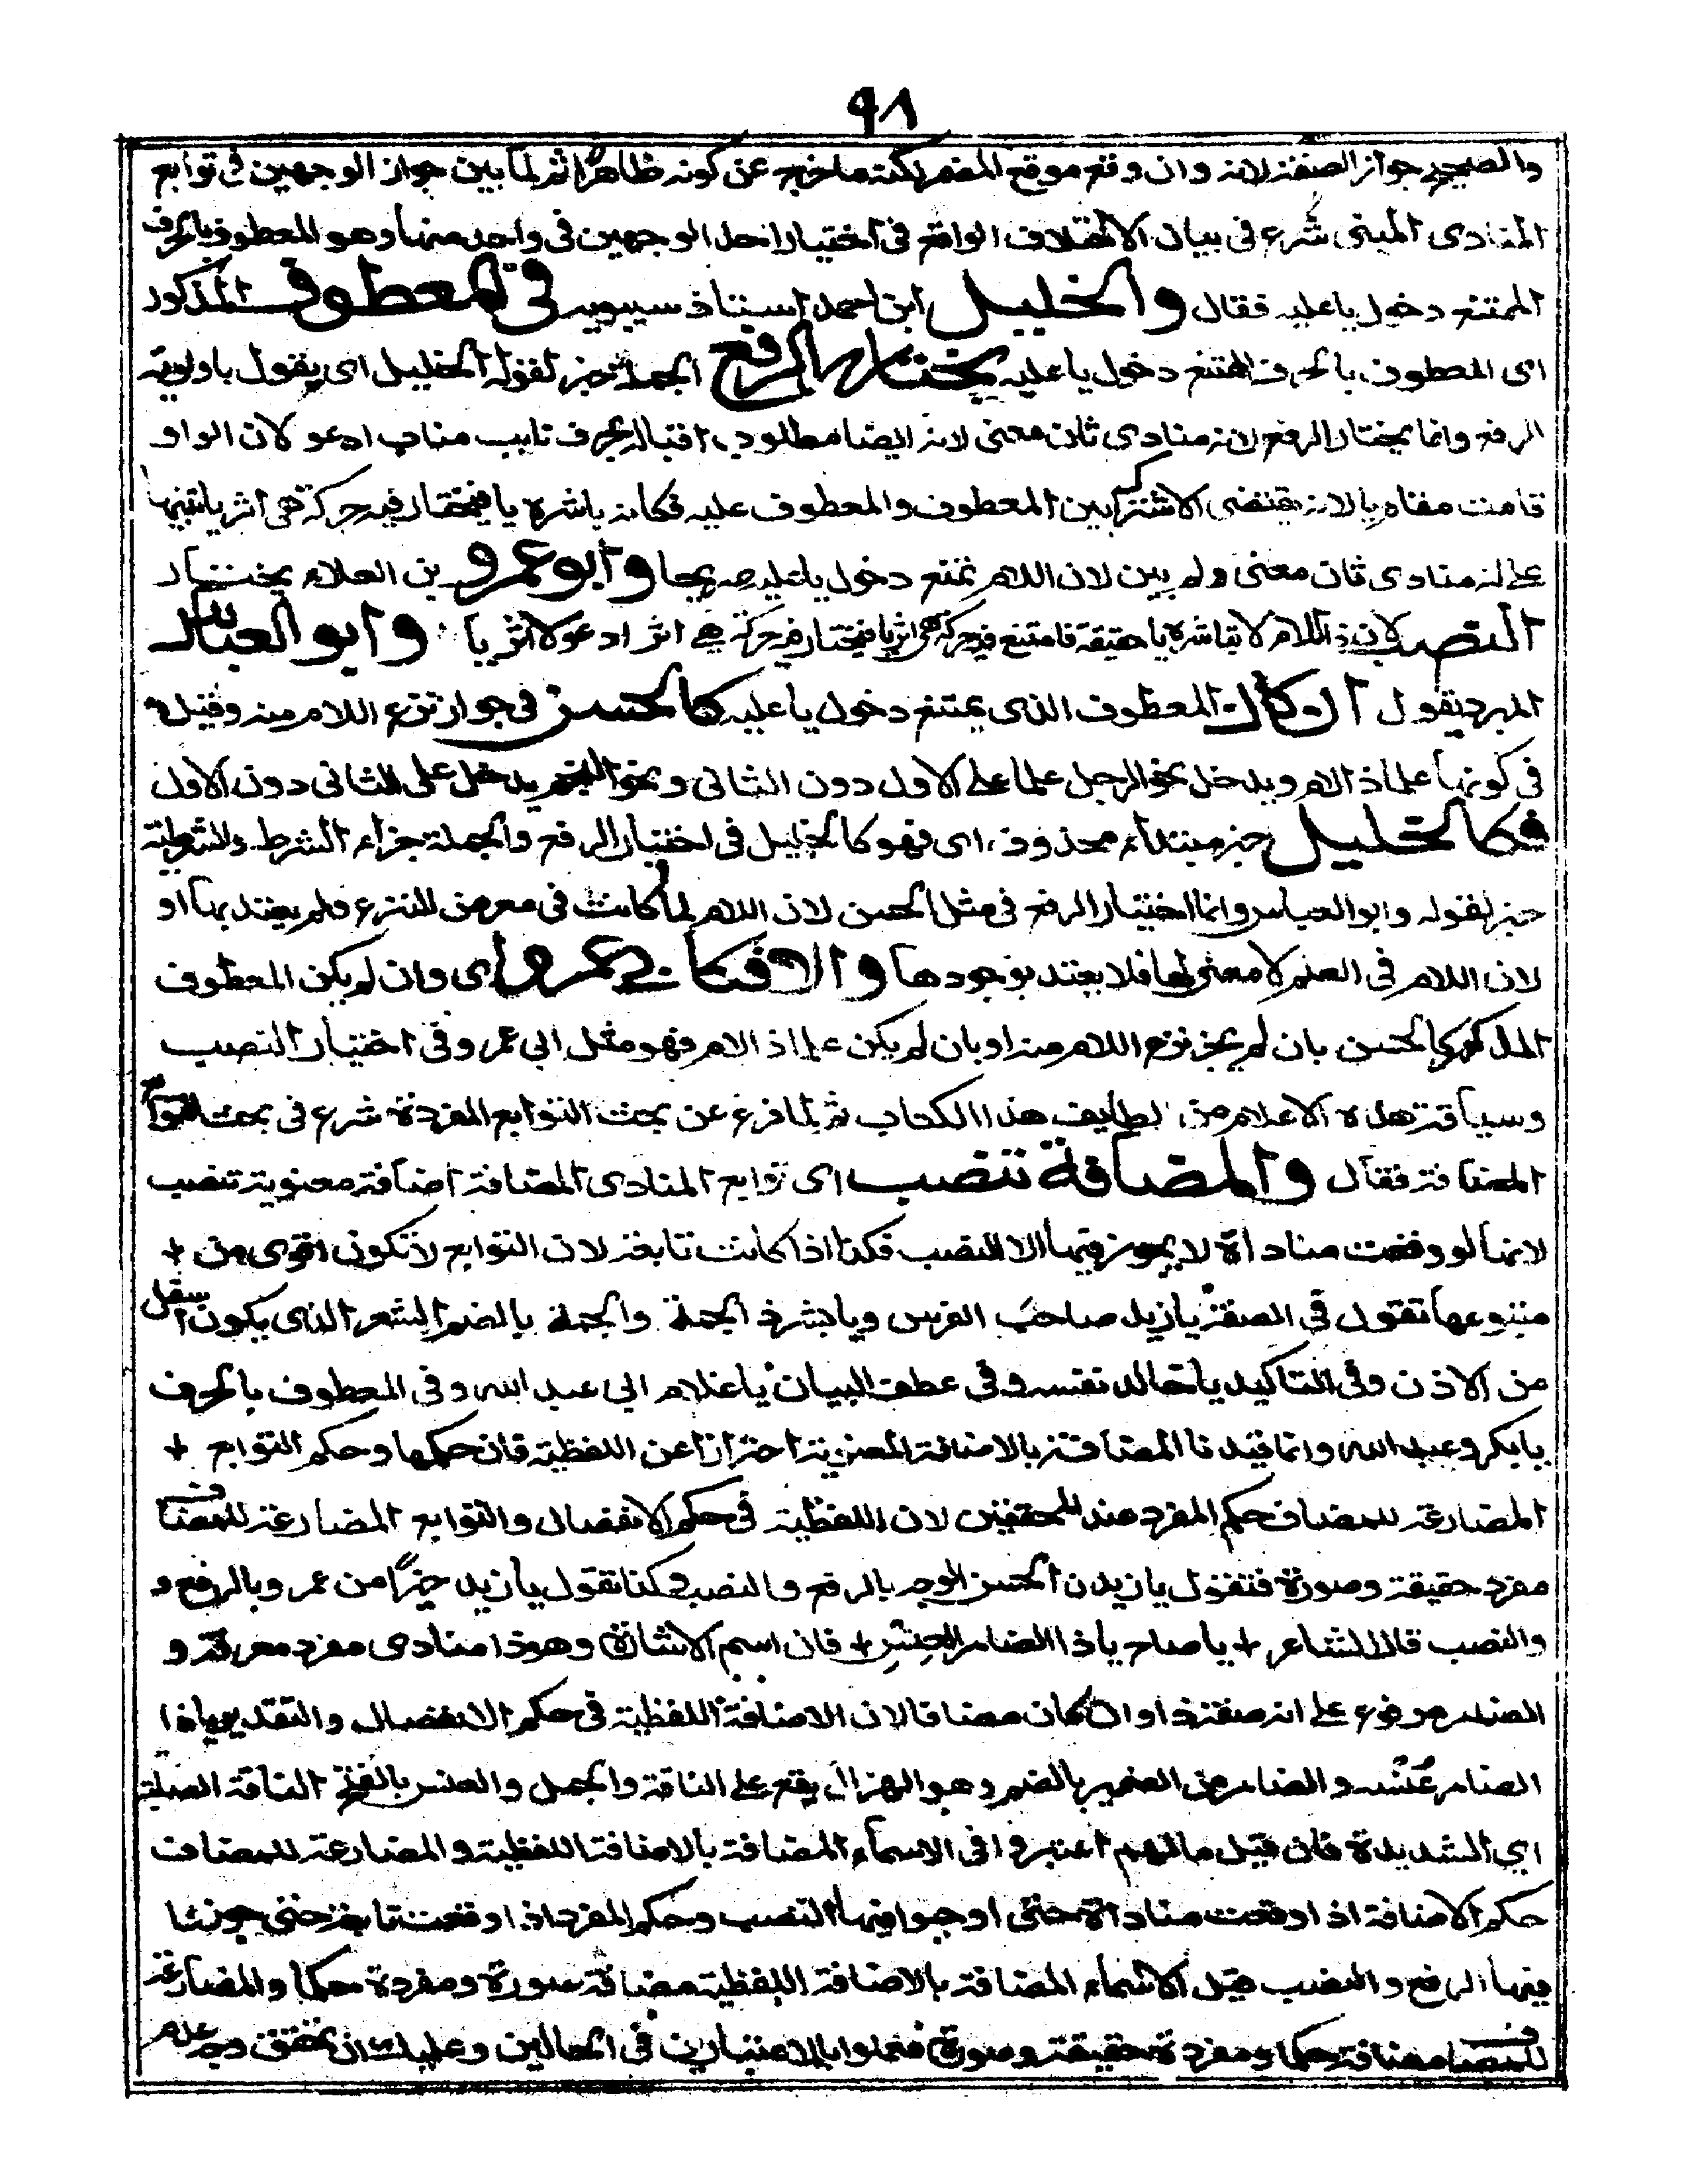 ٩٨
والصحيح جواز الصفة لانه وان وقع موقع المضمر لكنه ما خرج عن كونه ظاهرا ثم لما بين جواز الوجهين في توابع
المنادى المبنى شرع في بيان الاختلاف الواقع في اختيار احد الوجهين في واحد منها وهو المعطوف بالحرف
الممتنع دخول يا عليه فقال والخليل ابن احمد استاذ سيبويه في المعطوف المذكور
اى المعطوف بالحرف الممتنع دخول يا عليه يختار الرفع الجملة خبر لقوله الخليل اى يقول باولوية
الرفع وانما يختار الرفع لانه منادى ثان معنى لانه ايضا مطلوب اقباله بحرف نايب مناب ادعو لان الواو
قامت مقام يا لانه يقتضى الاشتراك بين المعطوف والمعطوف عليه فكانه باشره يا فيختار فيه حركة هي اثر يا تنبيها
على انه منادى ثان معنى ولم يبن لان اللام تمنع دخول يا عليه صريحا وابو عمرو بن العلاء يختار
النصب لان ذا اللام لا تباشره يا حقيقة فامتنع فيه حركة هي اثر يا فيختار فيه حركة هي اثر ادعو لا اثر يا وابو العباس
المبرد يقول ان كان المعطوف الذى يمتنع دخول يا عليه كالحسن في جواز نزع اللام منه وقيل
في كونها علما ذا لام ويدخل نحو الرجل علما على الاول دون الثاني ونحو النجم يدخل على الثاني دون الاول
فكالخليل خبر مبتداء محذوف اى فهو كالخليل في اختيار الرفع والجملة جزاء الشرط والشرطية
خبر لقوله وابو العباس وانما اختيار الرفع في مثل الحسن لان اللام لما كانت في معرض النزع ولم يعتد بها او
لان اللام في العلم لا معنى لها فلا يعتد بوجودها والا فكابي عمرو اى وان لم يكن المعطوف
المذكور كالحسن بان لم يجز نزع اللام منه او بان لم يكن علما ذا لام فهو مثل ابي عمرو في اختيار النصب
وسياقة هذه الاعلام من لطايف هذا الكتاب ثم لما فرغ عن بحث التوابع المفردة شرع في بحث التوابع
المضافة فقال والمضافة تنصب اى توابع المنادى المضافة اضافة معنوية تنصب
لانها لو وقعت مناداة لا يجوز فيها الا النصب فكذا اذا كانت تابعة لان التوابع لا تكون اقوى من +
متبوعها تقول في الصفة يا زيد صاحب الفرس ويا بشر ذا الجمة والجمة بالضم الشعر الذى يكون اسفل
من الاذن وفي التاكيد يا خالد نفسه وفي عطف البيان يا غلام ابي عبد الله وفي المعطوف بالحرف
يا بكر وعبد الله وانما قيدنا المضافة بالاضافة المعنوية احترازا عن اللفظية فان حكمها وحكم التوابع +
المضارعة للمضاف حكم المفرد عند المحققين لان اللفظية في حكم الانفصال والتوابع المضارعة للمضاف
مفرد حقيقة وصورة فتقول يا زيدن الحسن الوجه بالرفع والنصب وكذا تقول يا زيد خيرا من عمرو بالرفع و
والنصب قال الشاعر + يا صاح يا ذا الضامر العنس + فان اسم الاشارة وهو ذا منادى مفرد معرفة و
الضامر مرفوع على انه صفة ذا وان كان مضافا لان الاضافة اللفظية في حكم الانفصال والتقدير يا ذا
الضامر عنسه والضامر من الضمير بالضم وهو الهزال يقع على الناقة والجمل والعنس بالفتح الناقة الصلبة
اى الشديدة فان قيل ما لهم اعتبروا في الاسماء المضافة بالاضافة اللفظية والمضارعة للمضاف
حكم الاضافة اذا وقعت مناداة حتى اوجبوا فيها النصب وحكم المفرد اذا وقعت تابعة حتى جوزوا
فيها الرفع والنصب قيل الاسماء المضافة بالاضافة اللفظية مضافة صورة ومفردة حكما والمضارعة
للمضاف مضافة حكما ومفردة حقيقة وصورة فعملوا بالاعتبارين في الحالين وعليك ان تحقق وجه علام